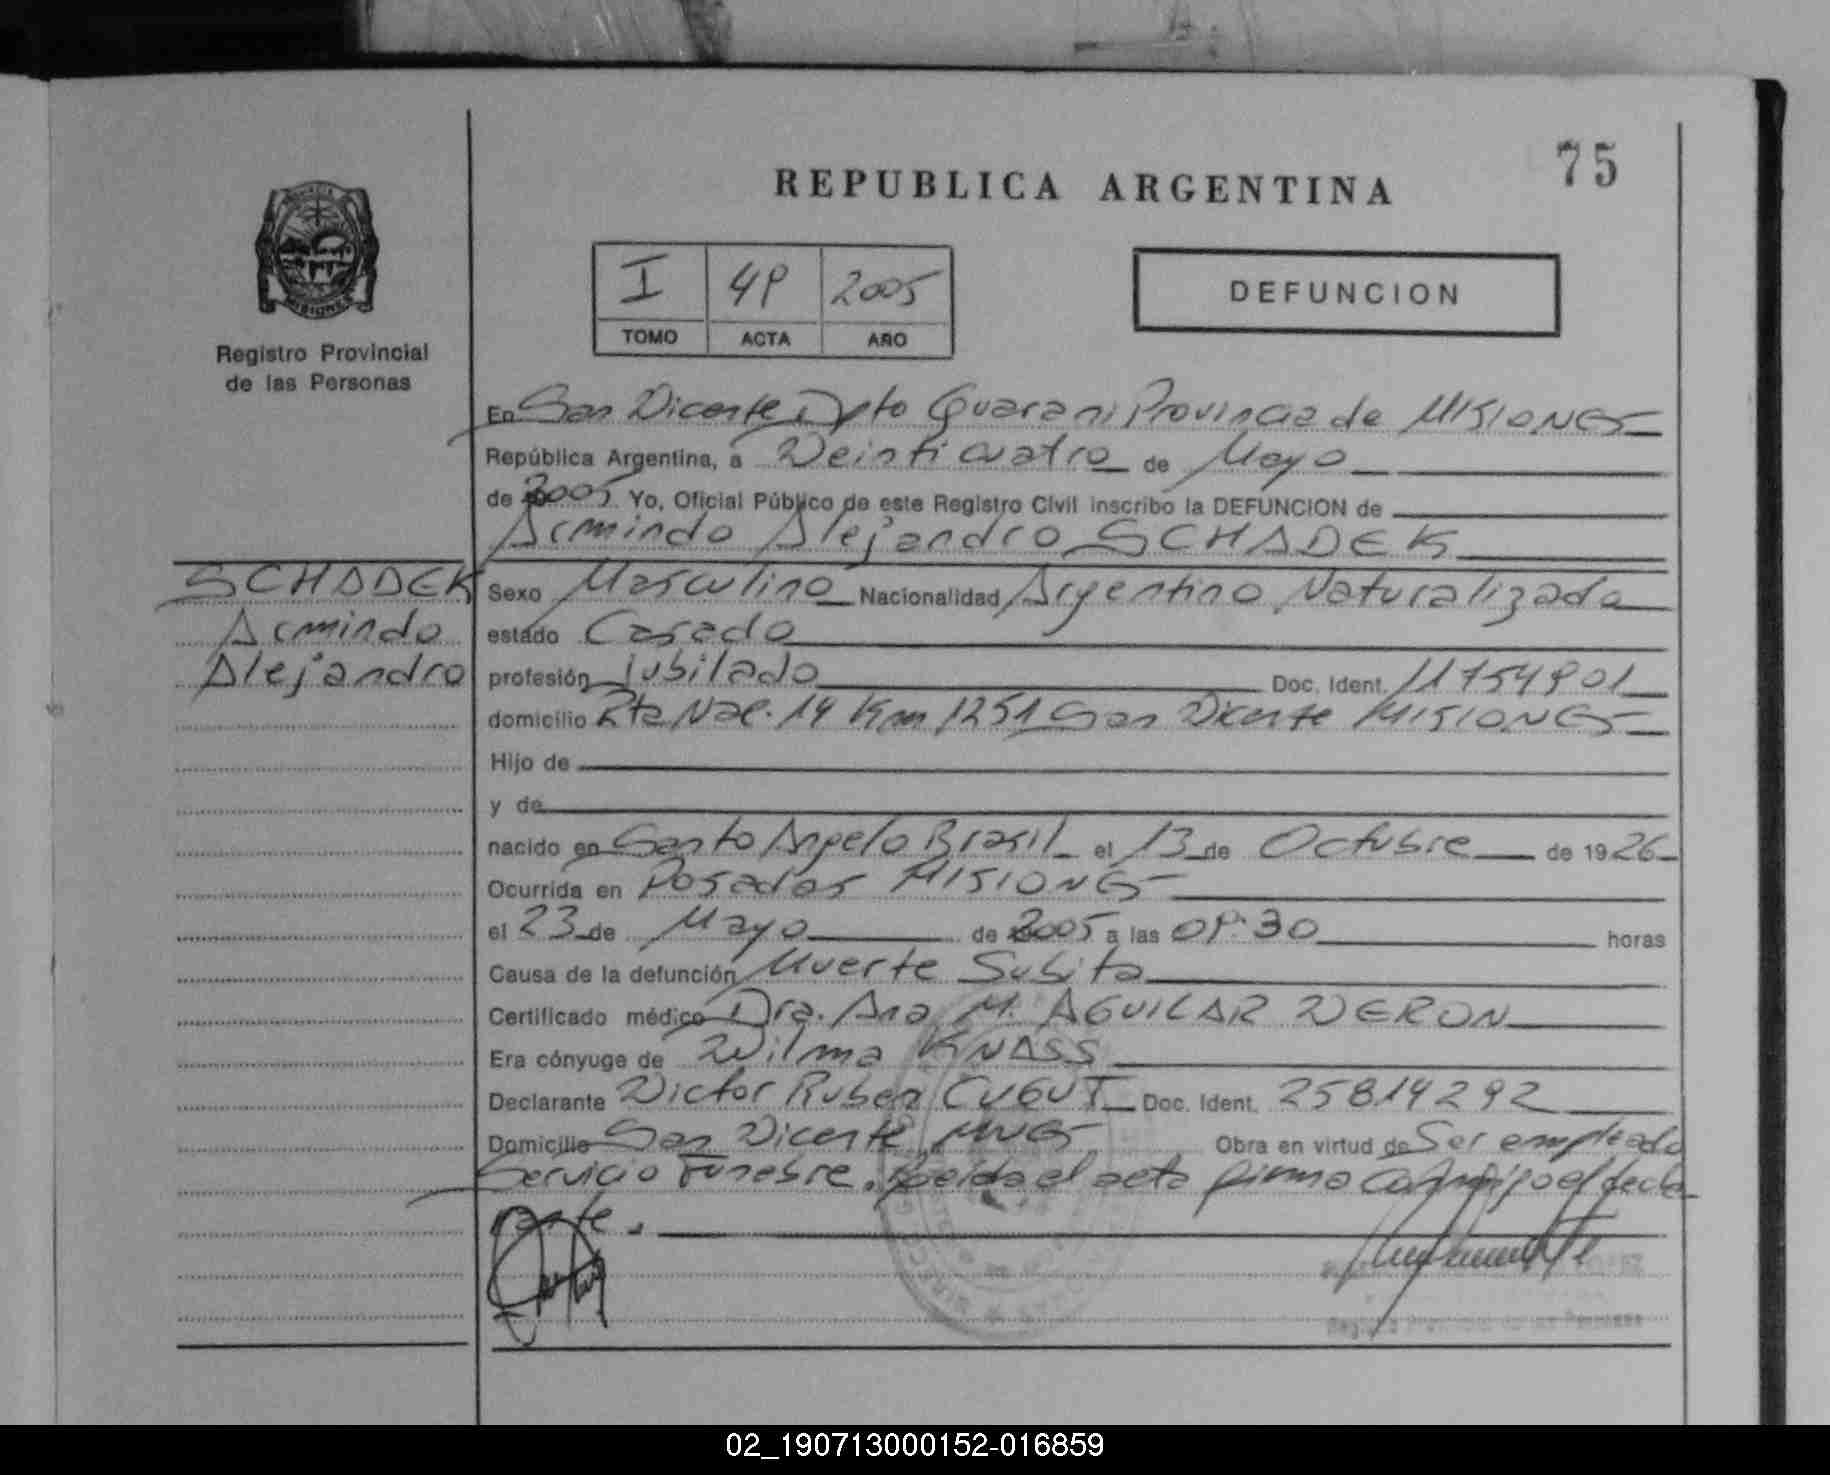 75
REPUBLICA ARGENTINA
I 49 2005
TOMO ACTA AÑO
DEFUNCION
Registro Provincial
de las Personas
En San Vicente Dpto Guarani Provincia de MISIONES
República Argentina, a Veinticuatro de Mayo
de 2005 Yo, Oficial Público de este Registro Civil inscribo la DEFUNCION de
Armindo Alejandro SCHADEK
SCHADEK
Armindo
Alejandro
Sexo Masculino Nacionalidad Argentino Naturalizado
estado Casado
profesión jubilado Doc. Ident. 11754901
domicilio Rta Nac. 14 Km 1251 San Vicente MISIONES
Hijo de
y de
nacido en Santo Angelo Brasil el 13 de Octubre de 1926
Ocurrida en Posadas MISIONES
el 23 de Mayo de 2005 a las 09:30 horas
Causa de la defunción Muerte Subita
Certificado médico Dra. Ana M. AGUILAR VERON
Era cónyuge de Wilma KNASS
Declarante Victor Ruben Doc. Ident. 25814292
Domicilio San Vicente MNES Obra en virtud de Ser empleado
Servicio Funebre. el acta firma conmigo el decla
rante.
02_190713000152-016859